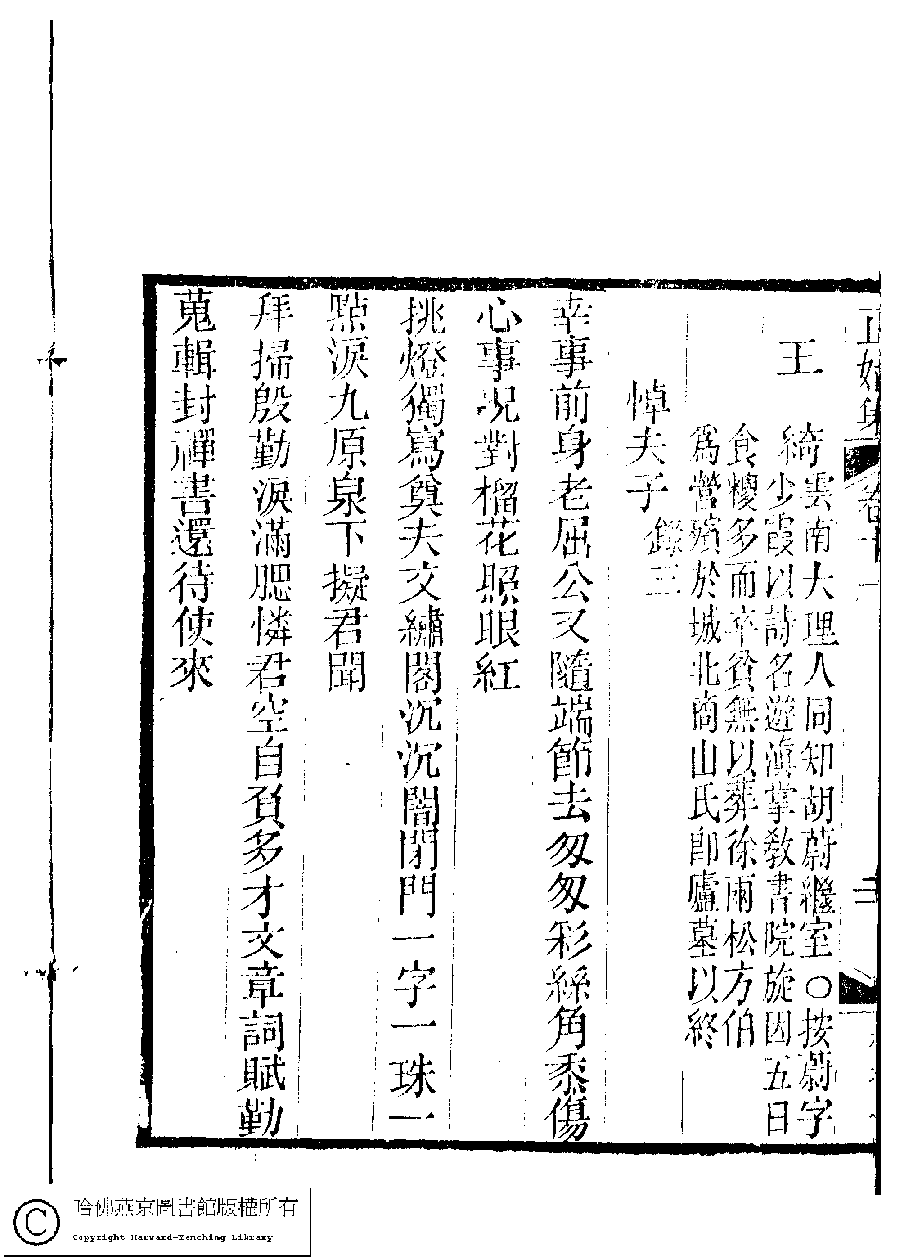 正始集 卷十一 二
王綺 雲南大理人同知胡蔚繼室○按蔚字
少霞以詩名遊滇掌敎書院旋因五日
食糭多而卒貧無以葬徐雨松方伯
爲營殯於城北商山氏卽廬墓以終
悼夫子 錄三
幸事前身老屈公又隨端節去匆匆彩絲角黍傷
心事况對榴花照眼紅
挑燈獨寫奠夫文繡閣沉沉闇閉門一字一珠一
點淚九原泉下擬君聞
拜掃殷勤淚滿腮憐君空自負多才文章詞賦勤
蒐輯封禪書還待使來
哈佛燕京圖書館版權所有
Copyright Harvard-Yenching Library